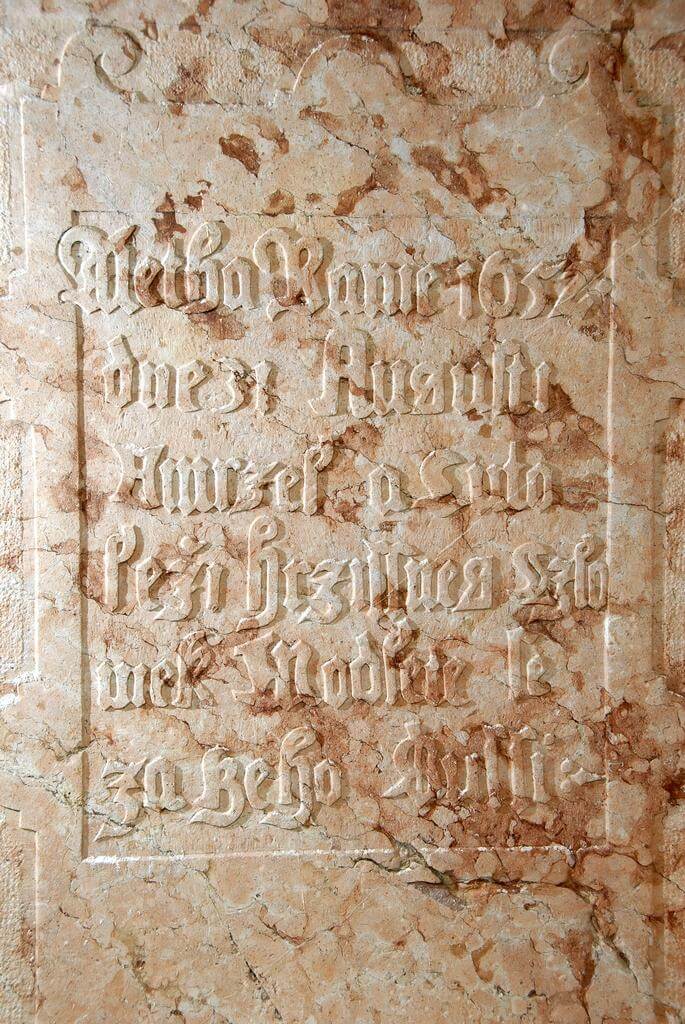 Letha Panie 1657
dne 21 Augusti
Aumrzel a tuto
leži hrzissneg Czlo
wiek Modlete se
za geho Dussi: